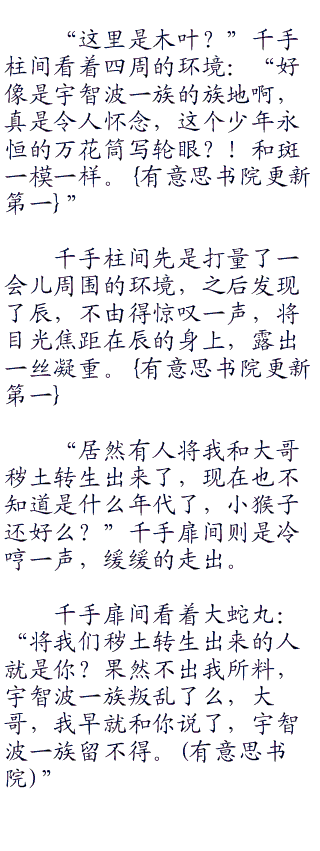 “这里是木叶？”千手
柱间看着四周的环境：“好
像是宇智波一族的族地啊，
真是令人怀念，这个少年永
恒的万花筒写轮眼？！和斑
一模一样。{有意思书院更新
第一}”
千手柱间先是打量了一
会儿周围的环境，之后发现
了辰，不由得惊叹一声，将
目光焦距在辰的身上，露出
一丝凝重。{有意思书院更新
第一}
“居然有人将我和大哥
秽土转生出来了，现在也不
知道是什么年代了，小猴子
还好么？”千手扉间则是冷
哼一声，缓缓的走出。
千手扉间看着大蛇丸：
“将我们秽土转生出来的人
就是你？果然不出我所料，
宇智波一族叛乱了么，大
哥，我早就和你说了，宇智
波一族留不得。(有意思书
院)”